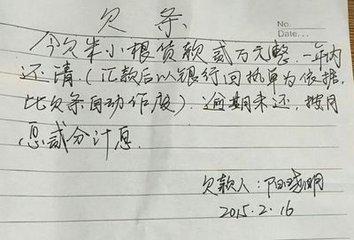 欠条
No.
Date.
今欠朱小根货款贰万元整.一年内
还清.(汇款后以银行回执单为依据,
此欠条自动作废).逾期未还,按月
息贰分计息.
欠款人:阳晓明
2015.2.16